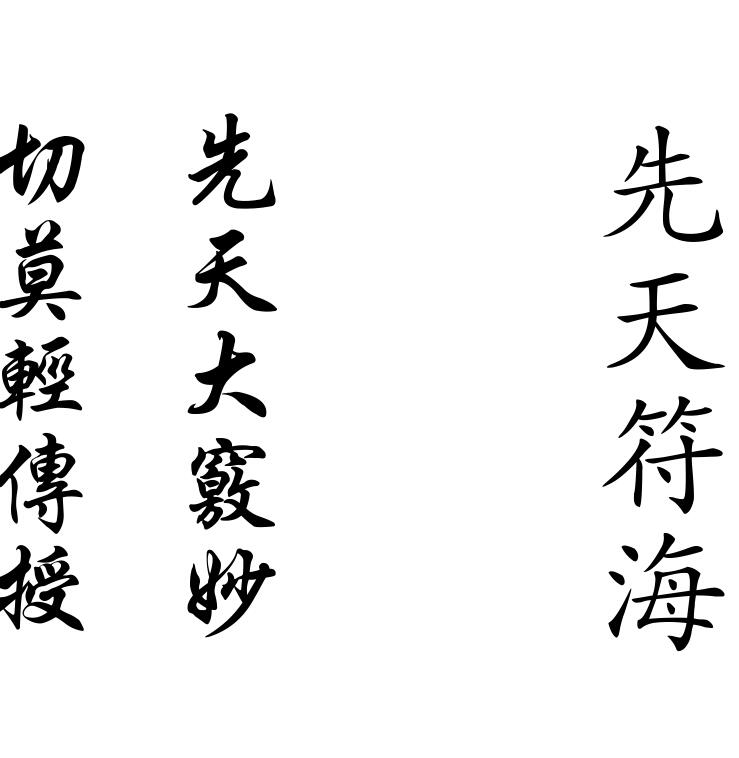 先天符海
先天大竅妙
切莫輕傳授